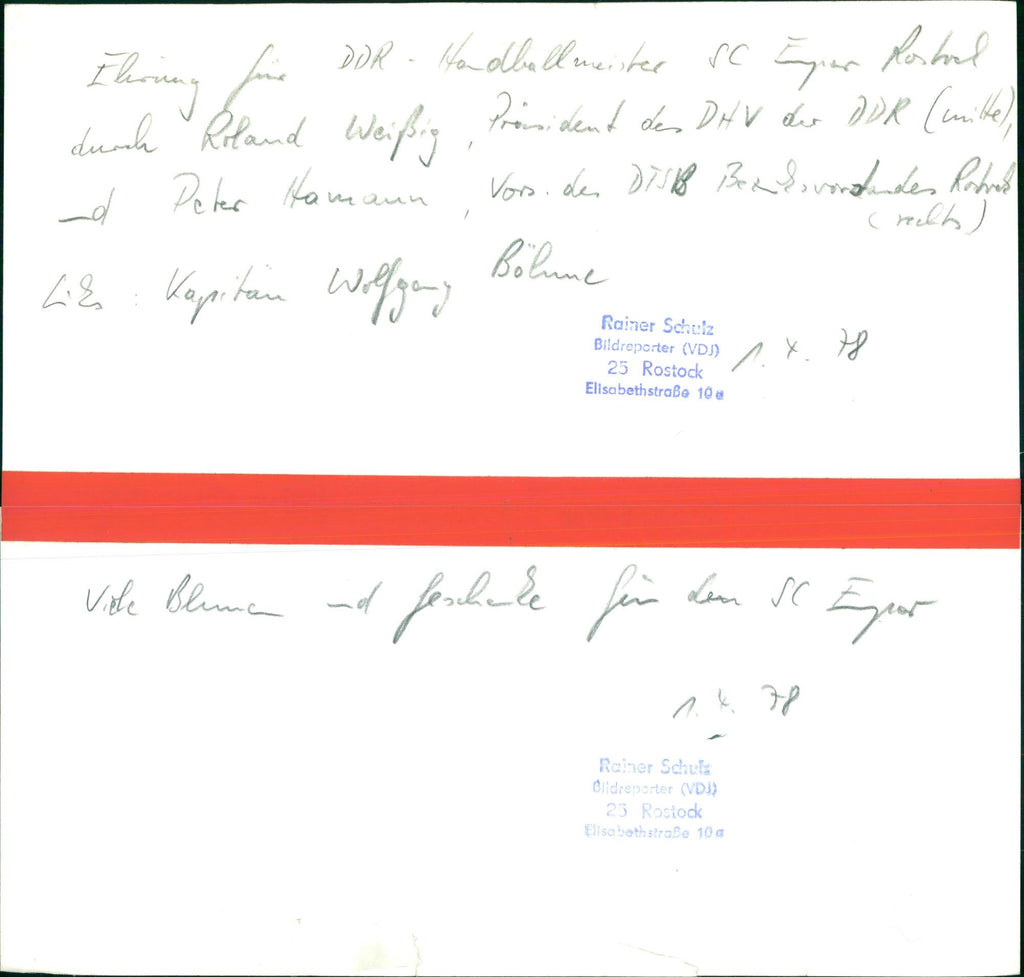 Ehrung für DDR-Handballmeister SC Empor Rostock
durch Roland Weißig, Präsident des DHV der DDR (mitte),
und Peter Hamann, Vors. des DTSB Bezirksvorstandes Rostock
(rechts)
Links: Kapitän Wolfgang Böhme
Rainer Schulz
Bildreporter (VDJ)
25 Rostock
Elisabethstraße 10a
1. 4. 78
Viele Blumen und Geschenke für den SC Empor
1. 4. 78
Rainer Schulz
Bildreporter (VDJ)
25 Rostock
Elisabethstraße 10a